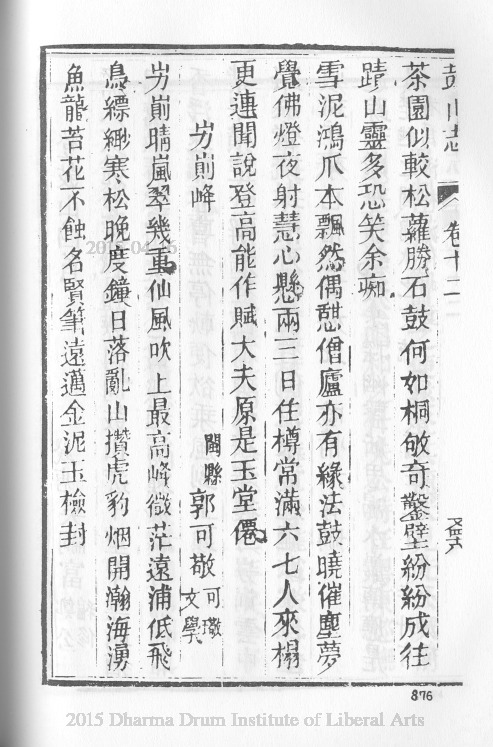 鼓山志 卷十二
茶園似較松蘿勝石鼓何如桐敂奇鑿壁紛紛成往
蹟山靈多恐笑余痴
雪泥鴻爪本飄然偶憇僧廬亦有緣法鼓曉催塵夢
覺佛燈夜射慧心懸兩三日住樽常滿六七人來榻
更連聞說登高能作賦大夫原是玉堂僊
屴崱峰 閩縣郭可敬可璥文學
屴崱晴嵐翠幾重仙風吹上最高峰微茫遠浦低飛
鳥縹緲寒松晚度鐘日落亂山攢虎豹烟開瀚海湧
魚龍苔花不蝕名賢筆遠邁金泥玉檢封
876
2015 Dharma Drum Institute of Liberal Arts